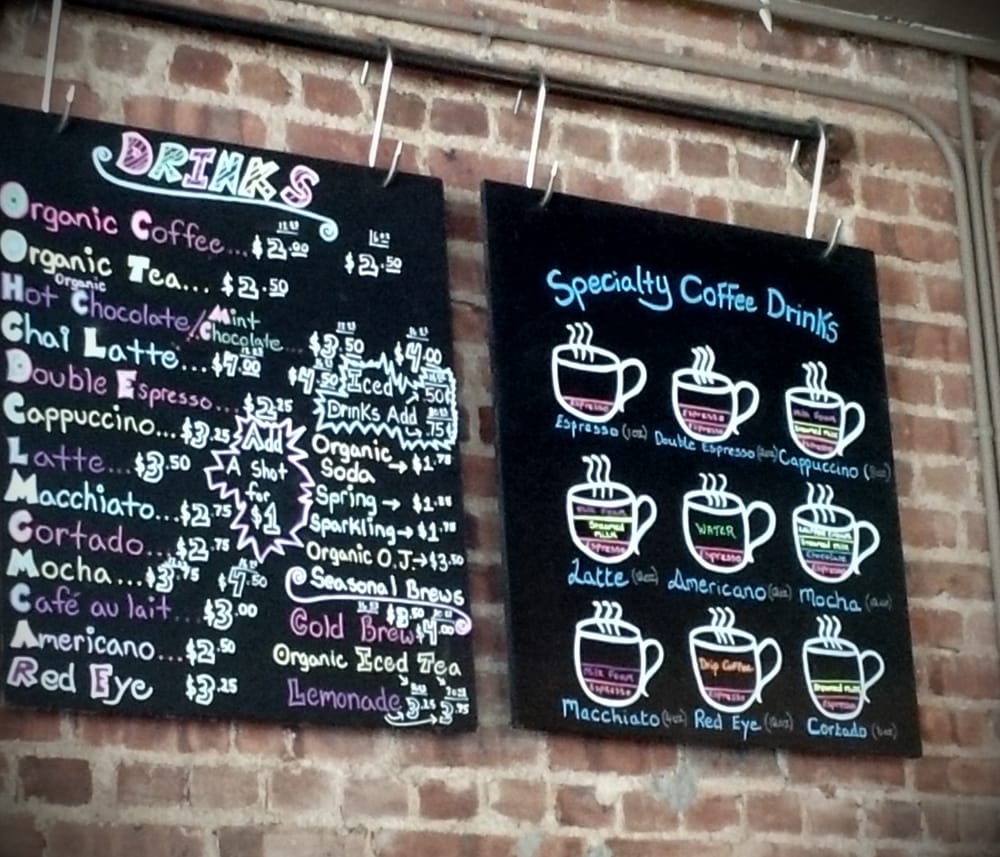 DRINKS
Organic Coffee... $2.00 $2.50
Organic Tea... $2.50
Organic
Hot Chocolate/Mint Chocolate... $3.50 $4.00
Chai Latte... $4.00 $4.50
Double Espresso... $2.25
Cappuccino... $3.25
Latte... $3.50
Macchiato... $2.75
Cortado... $2.75
Mocha... $3.75 $4.50
Café au lait... $3.00
Americano... $2.50
Red Eye $3.25
Add
A Shot
for
$1
Iced .50¢
Drinks Add .75¢
Organic
Soda → $1.75
Spring →
Sparkling →
Organic O.J → $3.50
Seasonal Brews
Cold Brew $3.50 $4.00
Organic Iced Tea
Lemonade 3.25 3.75
Specialty Coffee Drinks
Espresso
Espresso
Espresso
Espresso
Double Espresso
Milk Foam
Steamed Milk
Espresso
Cappuccino
Milk Foam
Steamed
Milk
Espresso
Latte
WATER
Espresso
Americano
Steamed Milk
Chocolate
Espresso
Mocha
Milk Foam
Espresso
Macchiato
Drip Coffee
Espresso
Red Eye
Steamed Milk
Espresso
Cortado